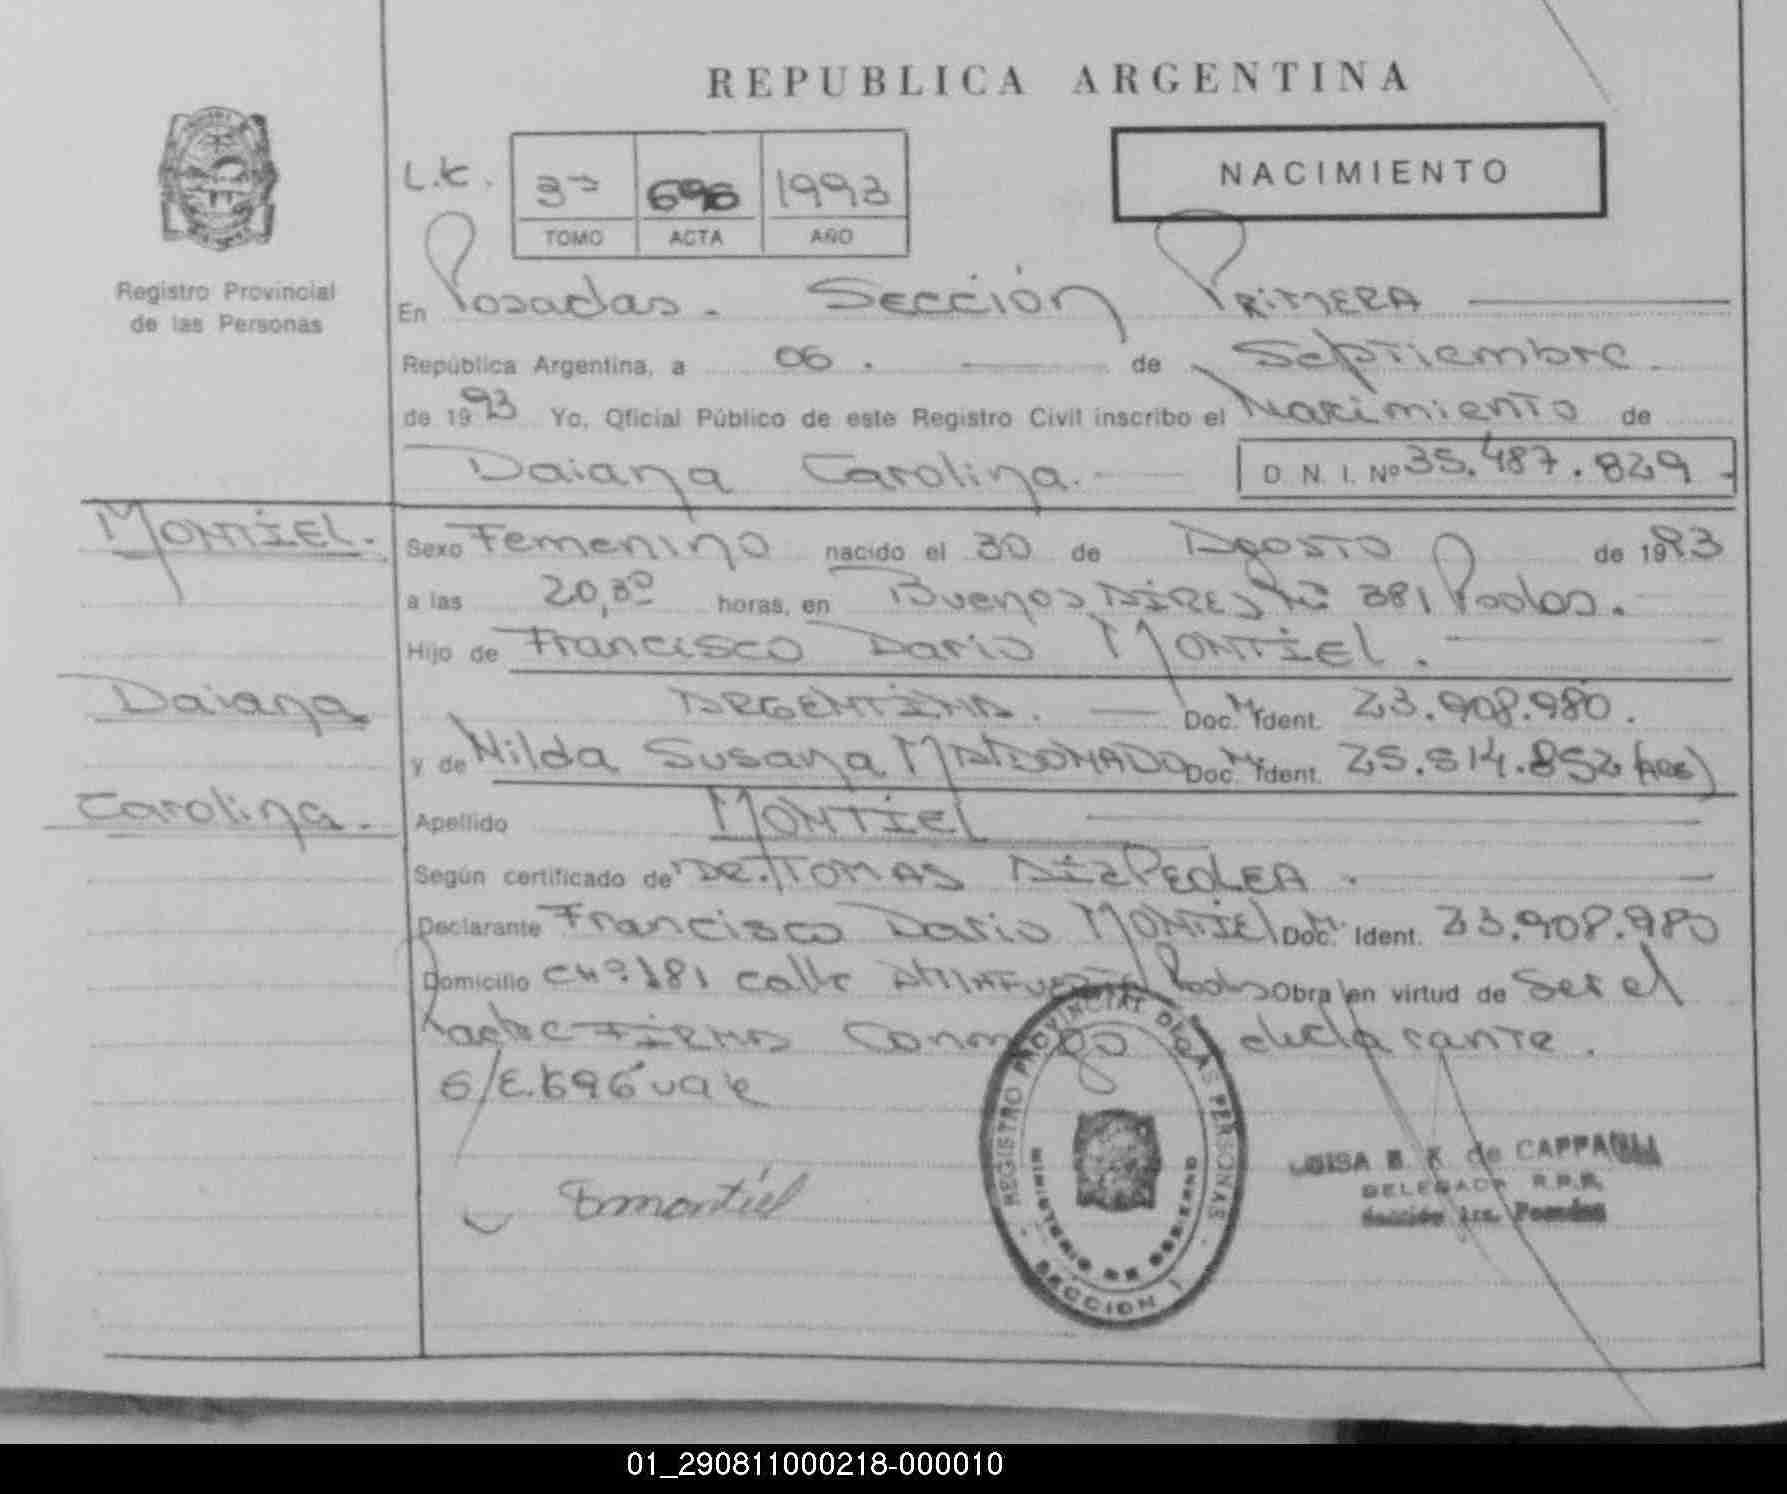 REPUBLICA ARGENTINA
NACIMIENTO
L.K. 3ro 696 1993
TOMO ACTA AÑO
Registro Provincial
de las Personas
En Posadas. Sección PRIMERA
República Argentina, a 06. de Septiembre.
de 1993 Yo, Oficial Público de este Registro Civil inscribo el Nacimiento de
Daiana Carolina. D. N. I. Nº 35.487.829
MONTIEL.
Sexo Femenino nacido el 30 de Agosto de 1993
a las 20,30 horas, en Buenos AIRES Nº 381 Posdas.
Hijo de Francisco Dario MONTIEL.
Daiana
ARGENTINA. Doc. M. Ident. 23.908.980.
y de Nilda Susana MALDONADO Doc. M. Ident. 25.514.852 (ARG)
Carolina.
Apellido MONTIEL
Según certificado de DR. TOMAS
Declarante Francisco Dario MONTIEL Doc. M. Ident. 23.908.980
Domicilio CHº 181 calle Posdas Obra en virtud de Ser el
Padre FIRMA Conmigo el declarante.
S/E. 696 vale
REGISTRO PROVINCIAL DE LAS PERSONAS
MINISTERIO DE GOBIERNO
SECCION 1
DMontiel
LUISA B. K. de CAPPA
DELEGADA R.P.P.
Sección 1ra. Posadas
01_290811000218-000010